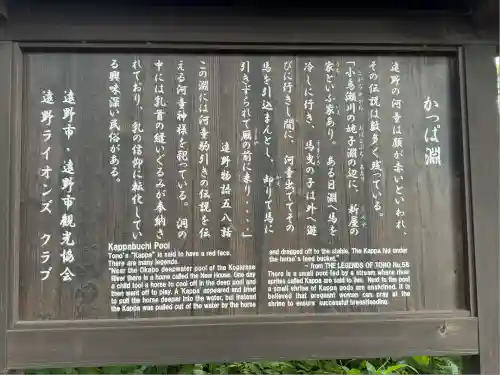 かっぱ淵
遠野の河童は顔が赤いといわれ、
その伝説は数多く残っている。
「小烏瀬川の姥子淵の辺に、新屋の
家といふ家あり。ある日淵へ馬を
冷しに行き、馬曳の子は外へ遊
びに行きし間に、河童出でてその
馬を引込まんとし、却りて馬に
引きずられて厩の前に来り・・・・」
遠野物語五八話
この淵には河童駒引きの伝説を伝
える河童神様を祀っている。洞の
中には乳首の縫いぐるみが奉納さ
れており、乳の信仰に転化してい
る興味深い民俗がある。
遠野市・遠野市観光協会
遠野ライオンズ クラブ
Kappabuchi Pool
Tono's "Kappa" is said to have a red face.
There are many legends.
"Near the Okabo deepwater pool of the Kogarase
River there is a home called the New House. One day
a child took a horse to cool off in the deep pool and
then went off to play. A Kappa appeared and tried
to pull the horse deeper into the water, but instead
the Kappa was pulled out of the water by the horse
and dragged off to the stable. The Kappa hid under
the horse's feed bucket."
- from THE LEGENDS OF TONO No.58
There is a small pool fed by a stream where river
sprites called Kappa are said to live. Next to the pool
a small shrine of Kappa gods are enshrined. It is
believed that pregnant woman can pray at the
shrine to ensure successful breastfeeding.